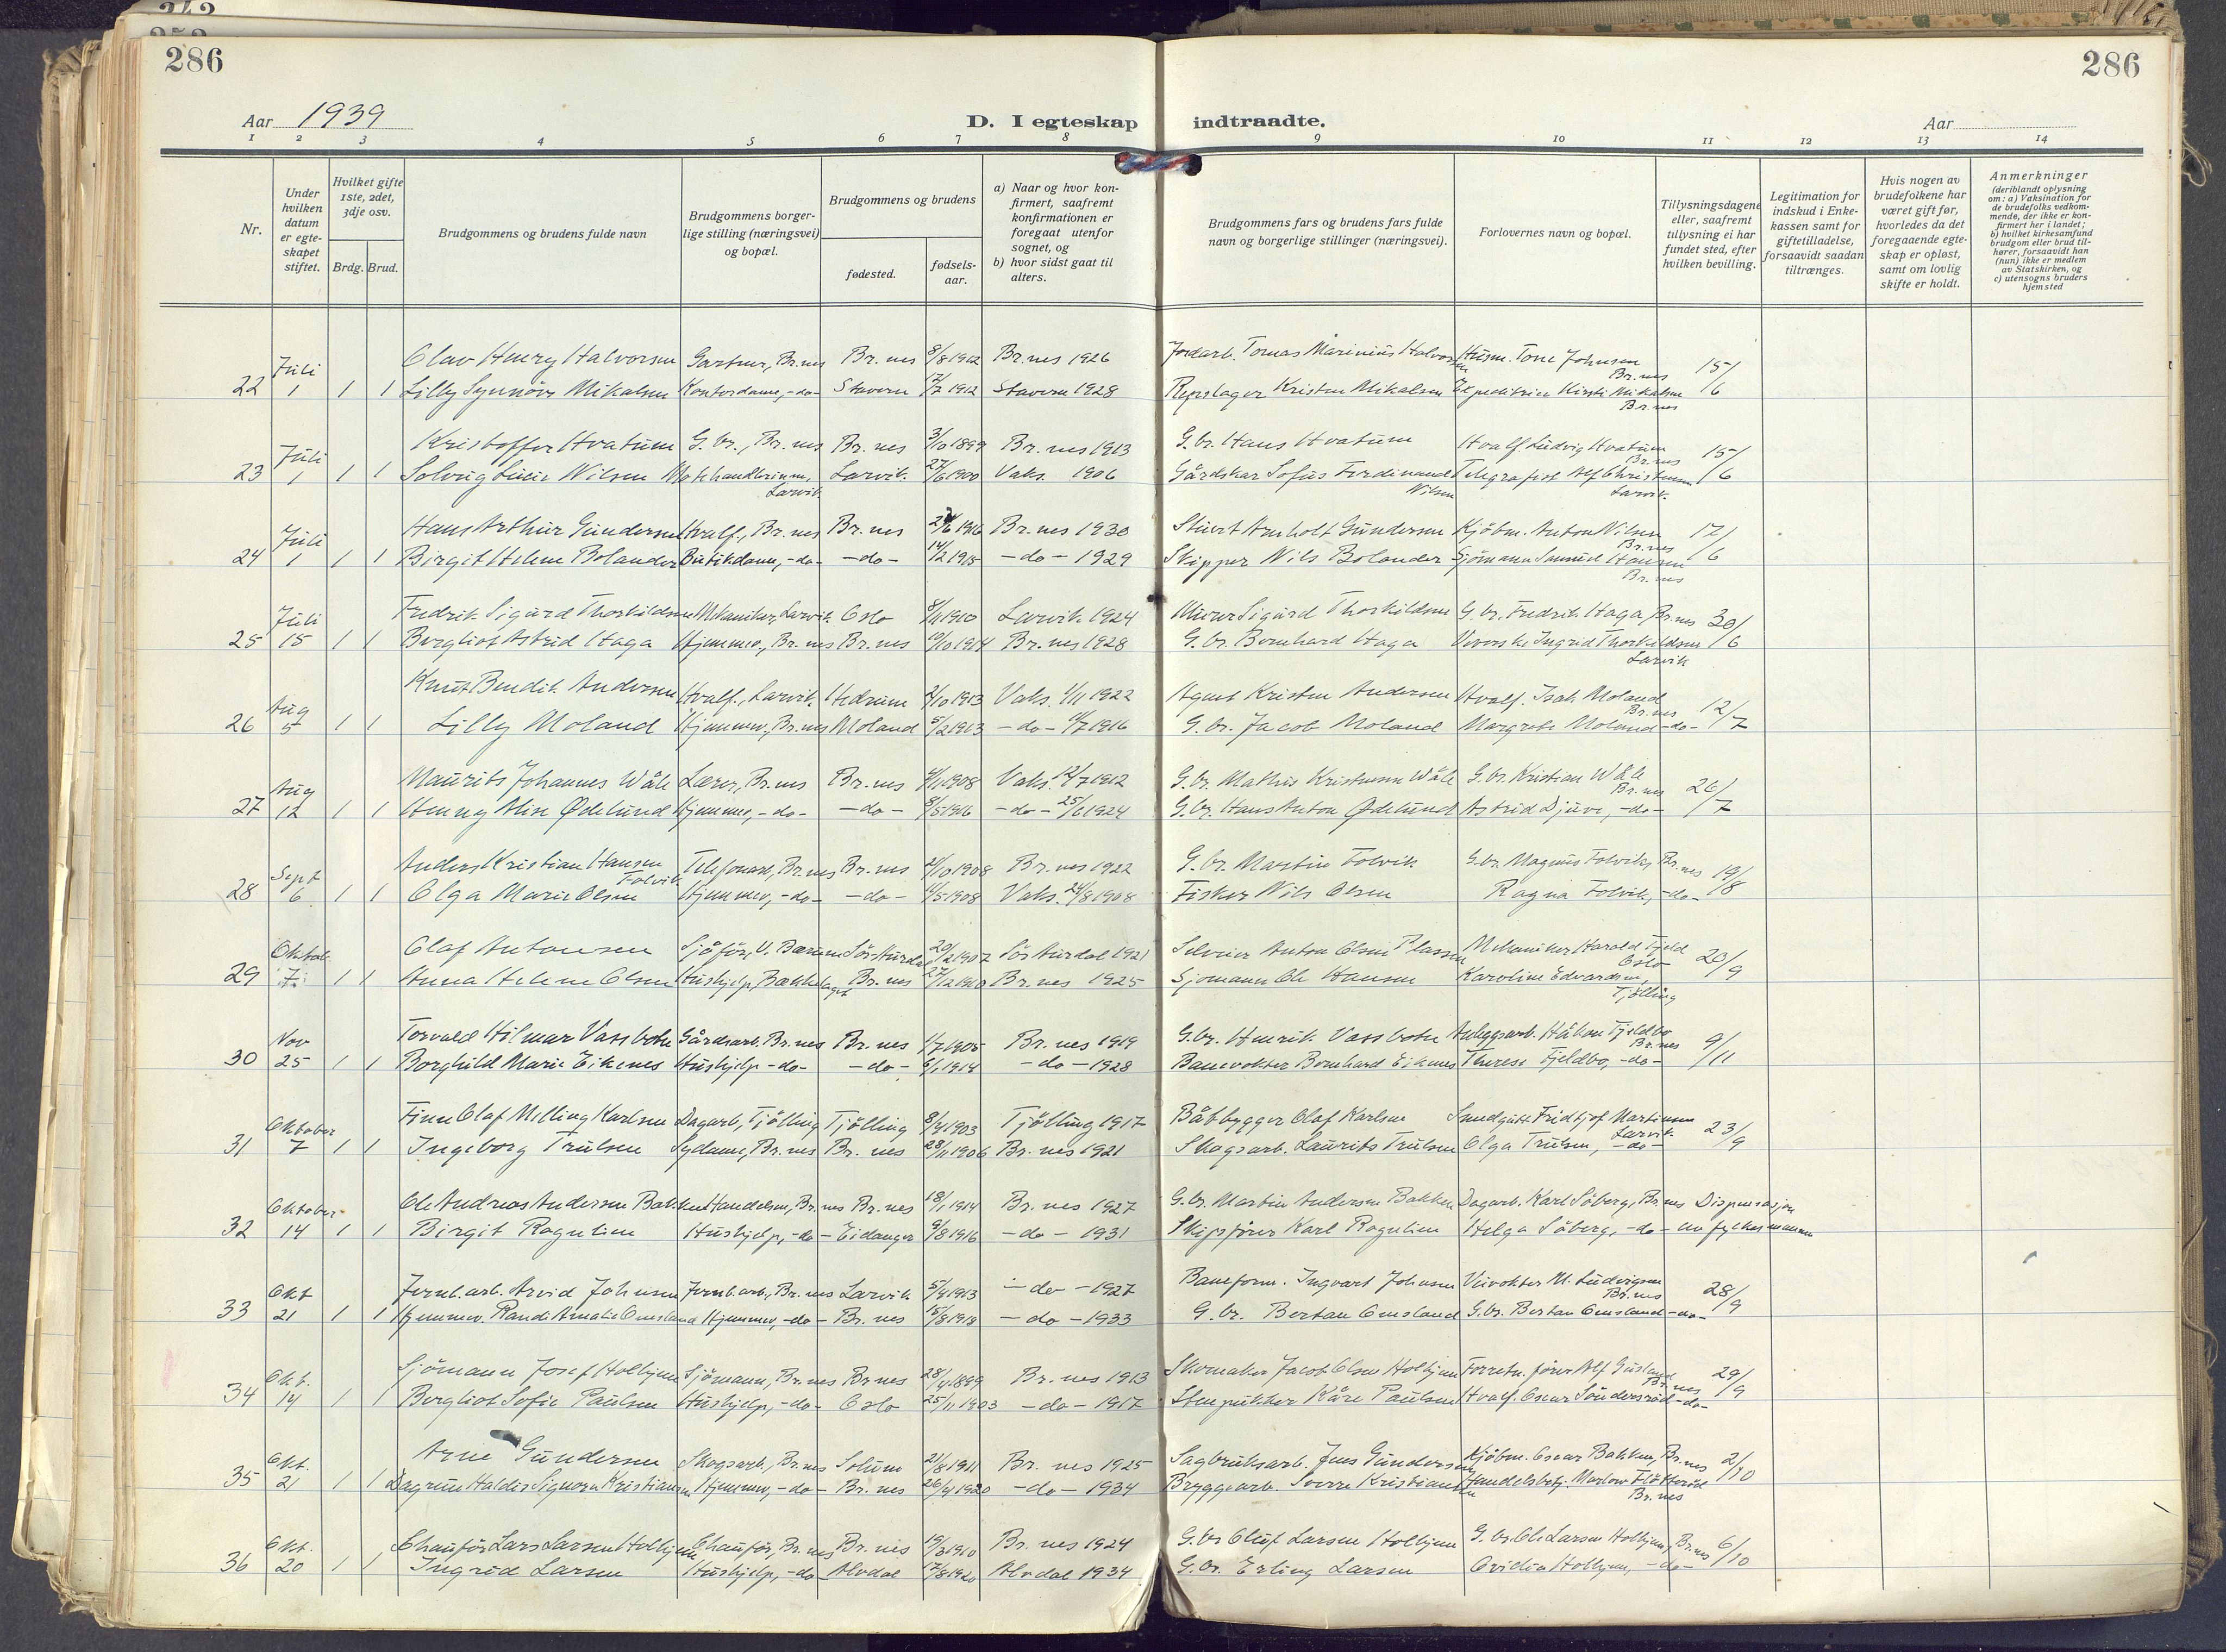 286
286
Aar 1939
D. I egteskap indtraadte.
Aar
1 2 3 4 5 6 7 8 9 10 11 12 13 14
Nr.
Under hvilken datum er egteskapet stiftet.
Hvilket gifte 1ste, 2det, 3dje osv.
Brdg. Brud.
Brudgommens og brudens fulde navn
Brudgommens borgerlige stilling (næringsvei) og bopæl.
Brudgommens og brudens
fødested.
fødselsaar.
a) Naar og hvor konfirmert, saafremt konfirmationen er foregaat utenfor sognet, og
b) hvor sidst gaat til alters.
Brudgommens fars og brudens fars fulde navn og borgerlige stillinger (næringsvei).
Forlovernes navn og bopæl.
Tillysningsdagene eller, saafremt tillysning ei har fundet sted, efter hvilken bevilling.
Legitimation for indskud i Enkekassen samt for giftetilladelse, forsaavidt saadan tiltrænges.
Hvis nogen av brudefolkene har været gift før, hvorledes da det foregaaende egteskap er opløst, samt om lovlig skifte er holdt.
Anmerkninger (deriblandt oplysning om: a) Vaksination for de brudefolks vedkommende, der ikke er konfirmert her i landet; b) hvilket kirkesamfund brudgom eller brud tilhører, forsaavidt han (hun) ikke er medlem av Statskirken, og c) utensogns bruders hjemsted
Juli Olav Henry Halvorsen Gartner, Br.nes Br. nes 8/8 1912 Br.nes 1926 Jordarb. Tomas Marinius Halvorsen Husm. Tone Johnsen Br.nes 15/6
22 1 1 1 Lilly Synnöve Mikalsen Kontordame, -do- Stavern 1912 Stavern 1928 Repslager Kristen Mikalsen Expeditrise Kirsti Mikalsen Br.nes
Juli Kristoffer Hvatum G.br., Br. nes Br. nes 3/10 1899 Br. nes 1913 G.br. Hans Hvatum Hvalf. Ludvig Hvatum Br.nes 15/6
23 1 1 1 Solveig Nilsen Larvik Larvik. 27/6 1900 Vaks. 1906 Gårdskar Sofus Ferdinand Nilsen Telegrafist Alf Christensen Larvik.
Juli Hans Arthur Gundersen Hvalf., Br. nes Br. nes 1916 Br. nes 1930 Stuert Arnholt Gundersen Kjöbm. Anton Nilsen Br.nes 17/6
24 1 1 1 Birgit Helene Bolander Butikdame, -do- -do- 14/2 1915 -do- 1929 Skipper Nils Bolander Sjömann Samuel Hansen Br. nes
Juli Fredrik Sigurd Thorkildsen Mekaniker, Larvik Oslo 8/11 1910 Larvik 1924 Murer Sigurd Thorkildsen G. br. Fredrik Haga Br.nes 30/6
25 15 1 1 Bergliot Astrid Haga Hjemmev., Br. nes Br. nes 19/10 1914 Br. nes 1928 G. br. Bernhard Haga Ingrid Thorkildsen Larvik
Aug Knut Bendik Andersen Hvalf., Larvik. Hedrum 2/10 1913 Vaks. 1/11 1922 Agent Kristen Andersen Hvalf. Isak Moland Br.nes 12/7
26 5 1 1 Lilly Moland Hjemmev., Br.nes Moland 5/2 1913 -do- 1916 G. br. Jacob Moland Margrete Moland -do-
Aug Maurits Johannes Wåle Lærer, Br.nes Br. nes 1908 Vaks. 12/7 1912 G. br. Mathis Kristensen Wåle G. br. Kristian Wåle Br. nes 26/7
27 12 1 1 Henny Alise Ødelund Hjemmev, -do- -do- 8/5 1916 -do- 25/6 1924 G. br. Hans Anton Ødelund Astrid Djuve, -do-
Sept Anders Kristian Hansen Folvik Telefonarb, Br.nes Br. nes 1908 Br. nes 1922 G. br. Martin Folvik G. br. Magnus Folvik, Br. nes 19/8
28 6 1 1 Olga Marie Olsen Hjemmev, -do- -do- 1908 Vaks. 24/8 1908 Fisker Nils Olsen Ragna Folvik, -do-
Oktob. Olaf Antonsen Sjåför, V. Bærum Sör-Aurdal 20/2 1907 Sör Aurdal 1921 Selveier Anton Olsen Plassen Mekaniker Harald Fjeld Oslo 20/9
29 7 1 1 Anna Helene Olsen Hushjelp, Bækkelaget Br. nes 27/12 1910 Br. nes 1925 Sjömann Ole Hansen Karoline Edvardsen, Tjölling
Nov Torvald Hilmar Vassbotn Gårdsarb. Br.nes Br. nes 1/7 1905 Br. nes 1919 G. br. Henrik Vassbotn Anleggsarb. Håkon Fjeldbo Br.nes 9/11
30 25 1 1 Borghild Marie Eikenes Hushjelp -do- -do- 6/1 1914 -do- 1928 Banevokter Bernhard Eikenes Therese Fjeldbo, -do-
Oktober Finn Olaf Melling Karlsen Dagarb., Tjölling Tjölling 1903 Tjölling 1917 Båtbygger Olaf Karlsen Fridtjof Martinsen Larvik. 23/9
31 7 1 1 Ingeborg Trulsen Sydame, Br. nes Br. nes 28/11 1906 Br. nes 1921 Skogsarb. Laurits Trulsen Olga Trulsen, -do-
Oktober Ole Andreas Andersen Bakken Handelsm, Br. nes Br. nes 18/1 1914 Br. nes 1927 G. br. Martin Andersen Bakken Dagarb. Karl Söberg, Br. nes Dispensasjon
32 14 1 1 Birgit Rogulin Hushjelp, -do- Eidanger 9/8 1916 -do- 1931 Skipsförer Karl Rogulin Helga Söberg, -do- av fylkesmannen
Okt Jernb.arb. Arvid Johnsen Jernb.arb., Br. nes Larvik 1913 -do- 1927 Baneform. Ingvart Johnsen Veivokter M. Ludvigsen Br. nes 28/9
33 21 1 1 Hjemmev. Randi Amalie Omsland Hjemmev, -do- Br. nes 15/8 1918 -do- 1933 G. br. Bertan Omsland G. br. Bertan Omsland -do-
Okt. Sjömann Josef Holtjem Sjömann, Br.nes Br nes 1899 Br. nes 1913 Skomaker Jacob Olsen Holtjem Forretn. förer Alf Br. nes 29/9
34 14 1 1 Bergliot Sofie Paulsen Hushjelp, -do- Oslo 25/11 1903 -do- 1917 Stenpukker Kåre Paulsen Hvalf. Oscar Söndersröd -do-
Okt. Arne Gundersen Skogsarb., Br.nes Solum 21/8 1911 Br. nes 1925 Sagbruksarb. Jens Gundersen Kjöbm. Oscar Bakken, Br. nes 2/10
35 21 1 1 Dagrun Haldis Signora Kristiansen Hjemmev, -do- Br. nes 26/4 1920 -do- 1934 Bryggearb. Sverre Kristiansen Handelsbetj. Br. nes
Okt. Chauför Lars Larsen Holtjem Chauför, Br. nes Br. nes 19/3 1910 Br. nes 1924 G. br Oluf Larsen Holtjem G. br. Ole Larsen Holtjem, Br. nes 6/10
36 20 1 1 Ingrid Larsen Hushjelp, -do- Alvdal 17/8 1920 Alvdal 1934 G. br. Erling Larsen Ovidia Holtjem, -do-